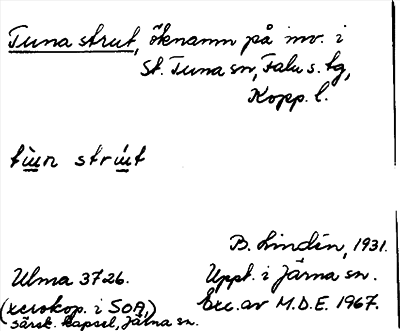 Tuna strut, öknamn på inv. i
St. Tuna sn, Falu s. tg,
Kopp. l.
tùun strút
B. Lindén, 1931.
Ulma 3726. Uppt. i Järna sn.
(xeroxkop. i SOA, Exc. av M.D.E. 1967.
särsk. kapsel, Järna sn.